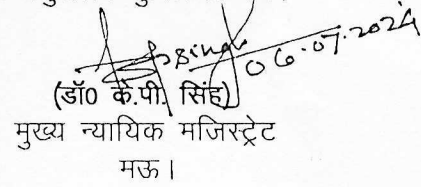 06.07.2024
(डॉ0 के.पी. सिंह)
मुख्य न्यायिक मजिस्ट्रेट
मऊ।